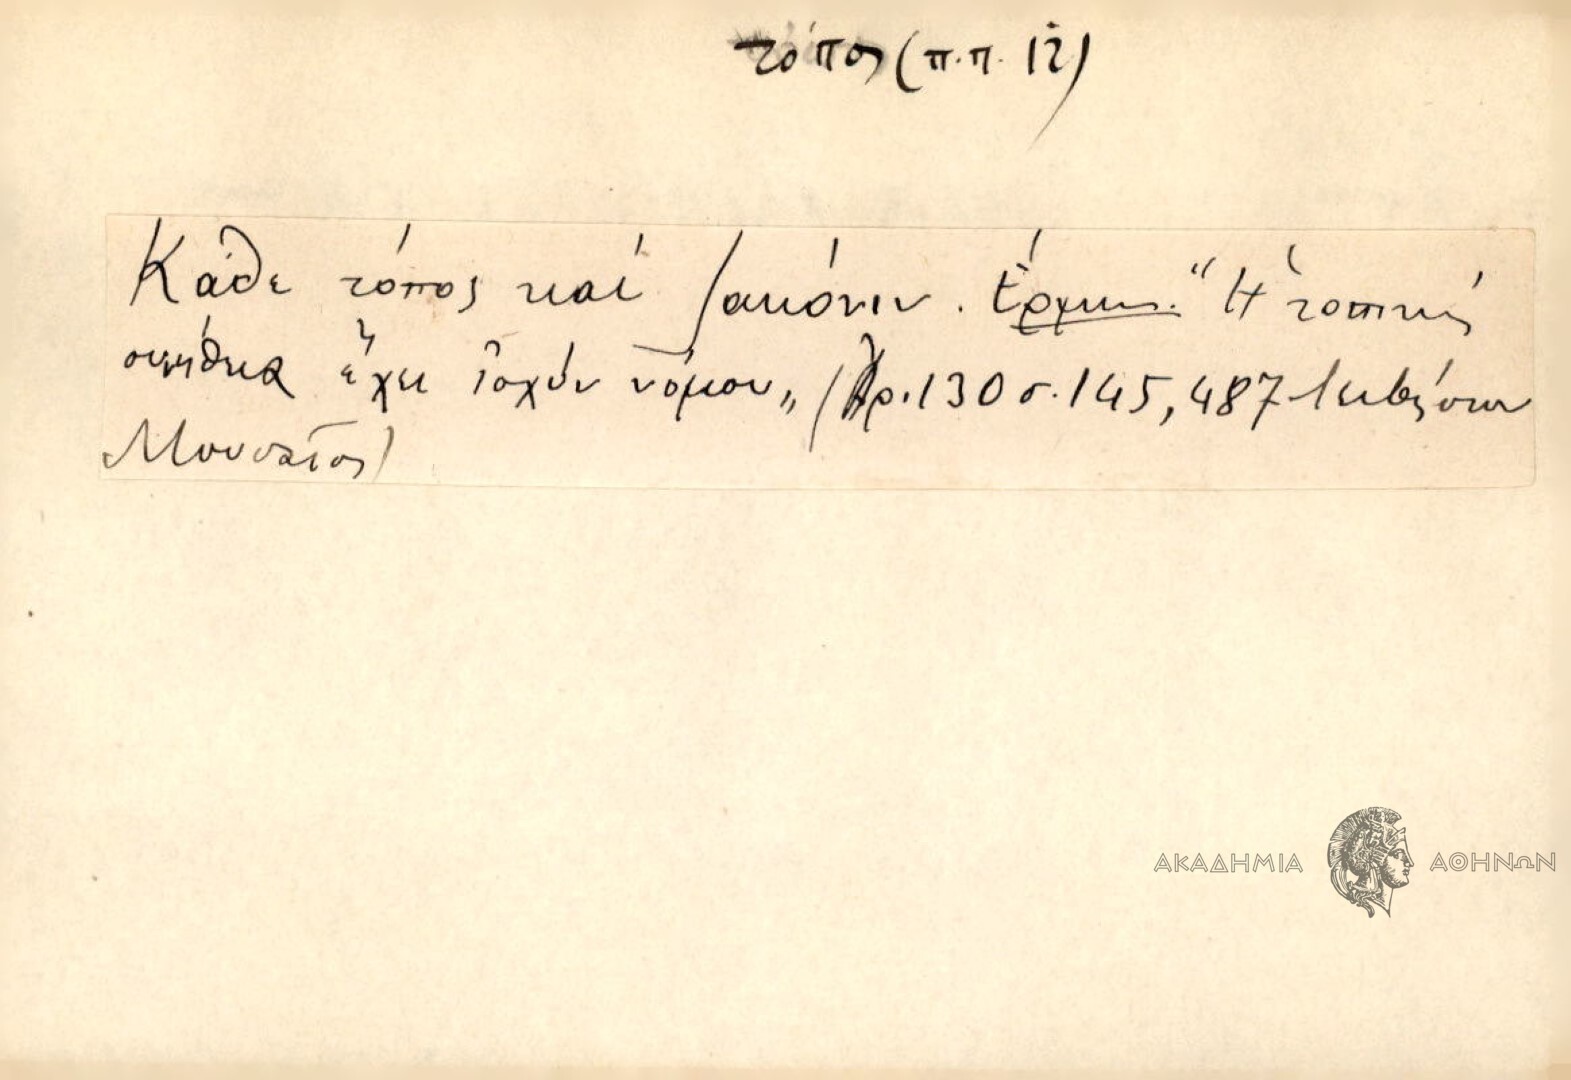 τόπος (π.π. 12)
Κάθε τόπος καί ζακόνιν. Ἑρμην. "Ἡ τοπική
συνήθεια ἔχει ἰσχύν νόμου" (Ἀρ. 130 σ. 145, 487
Μουσαῖος)
ΑΚΑΔΗΜΙΑ ΑΘΗΝΩΝ